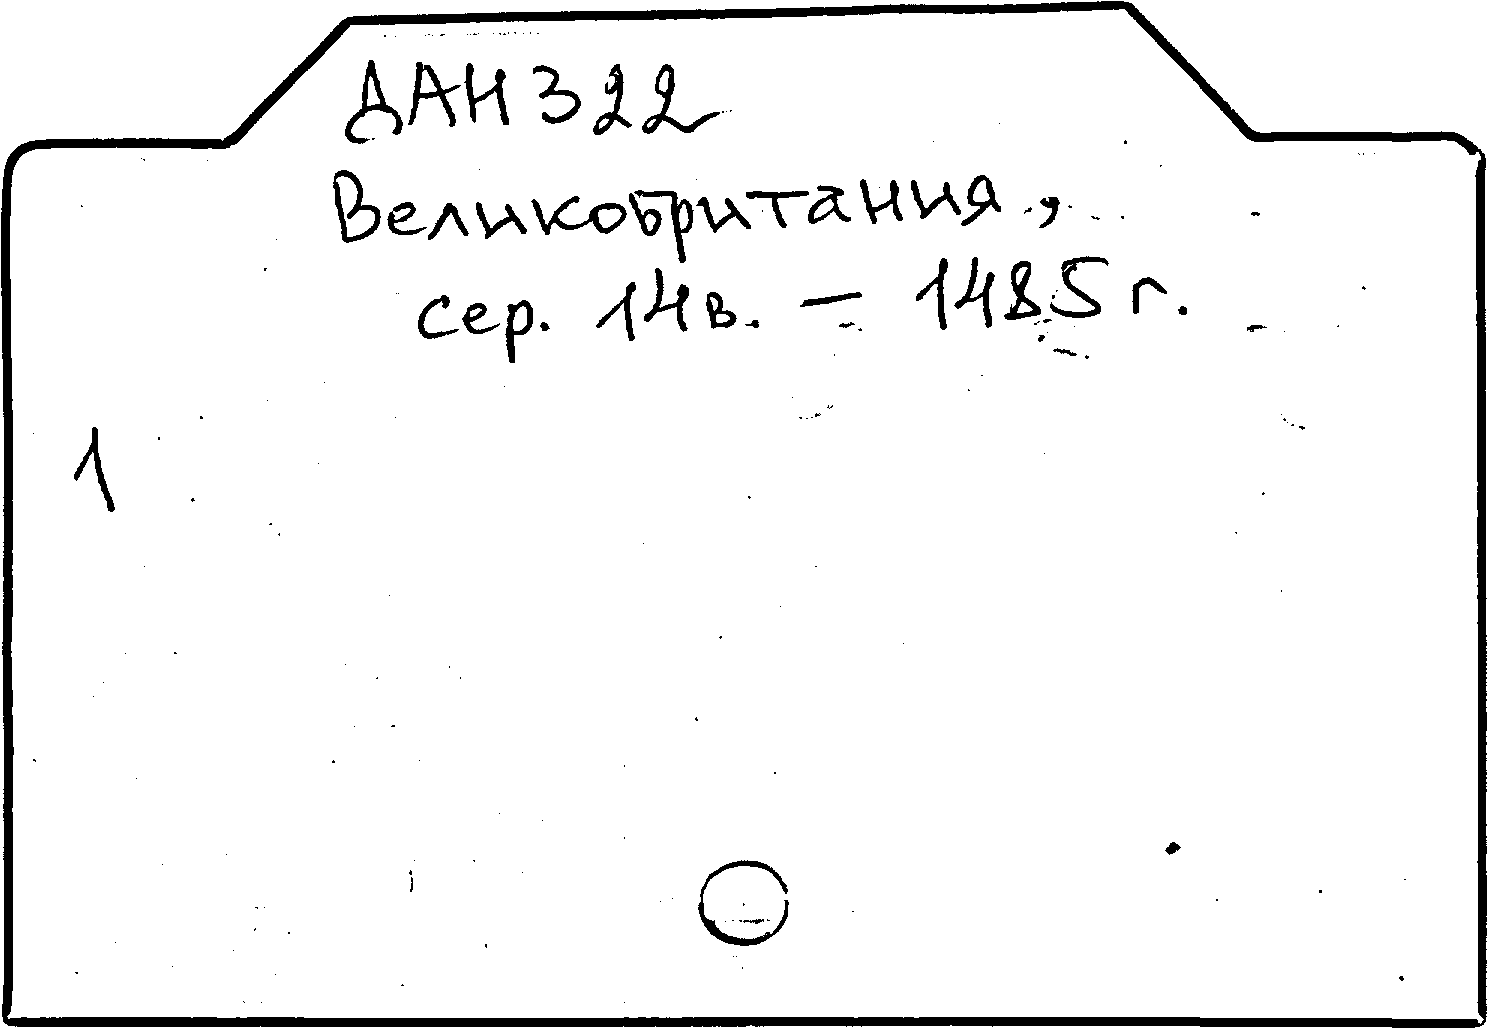 ДАН 322
Великобритания,
сер. 14 в. – 1485 г.
1